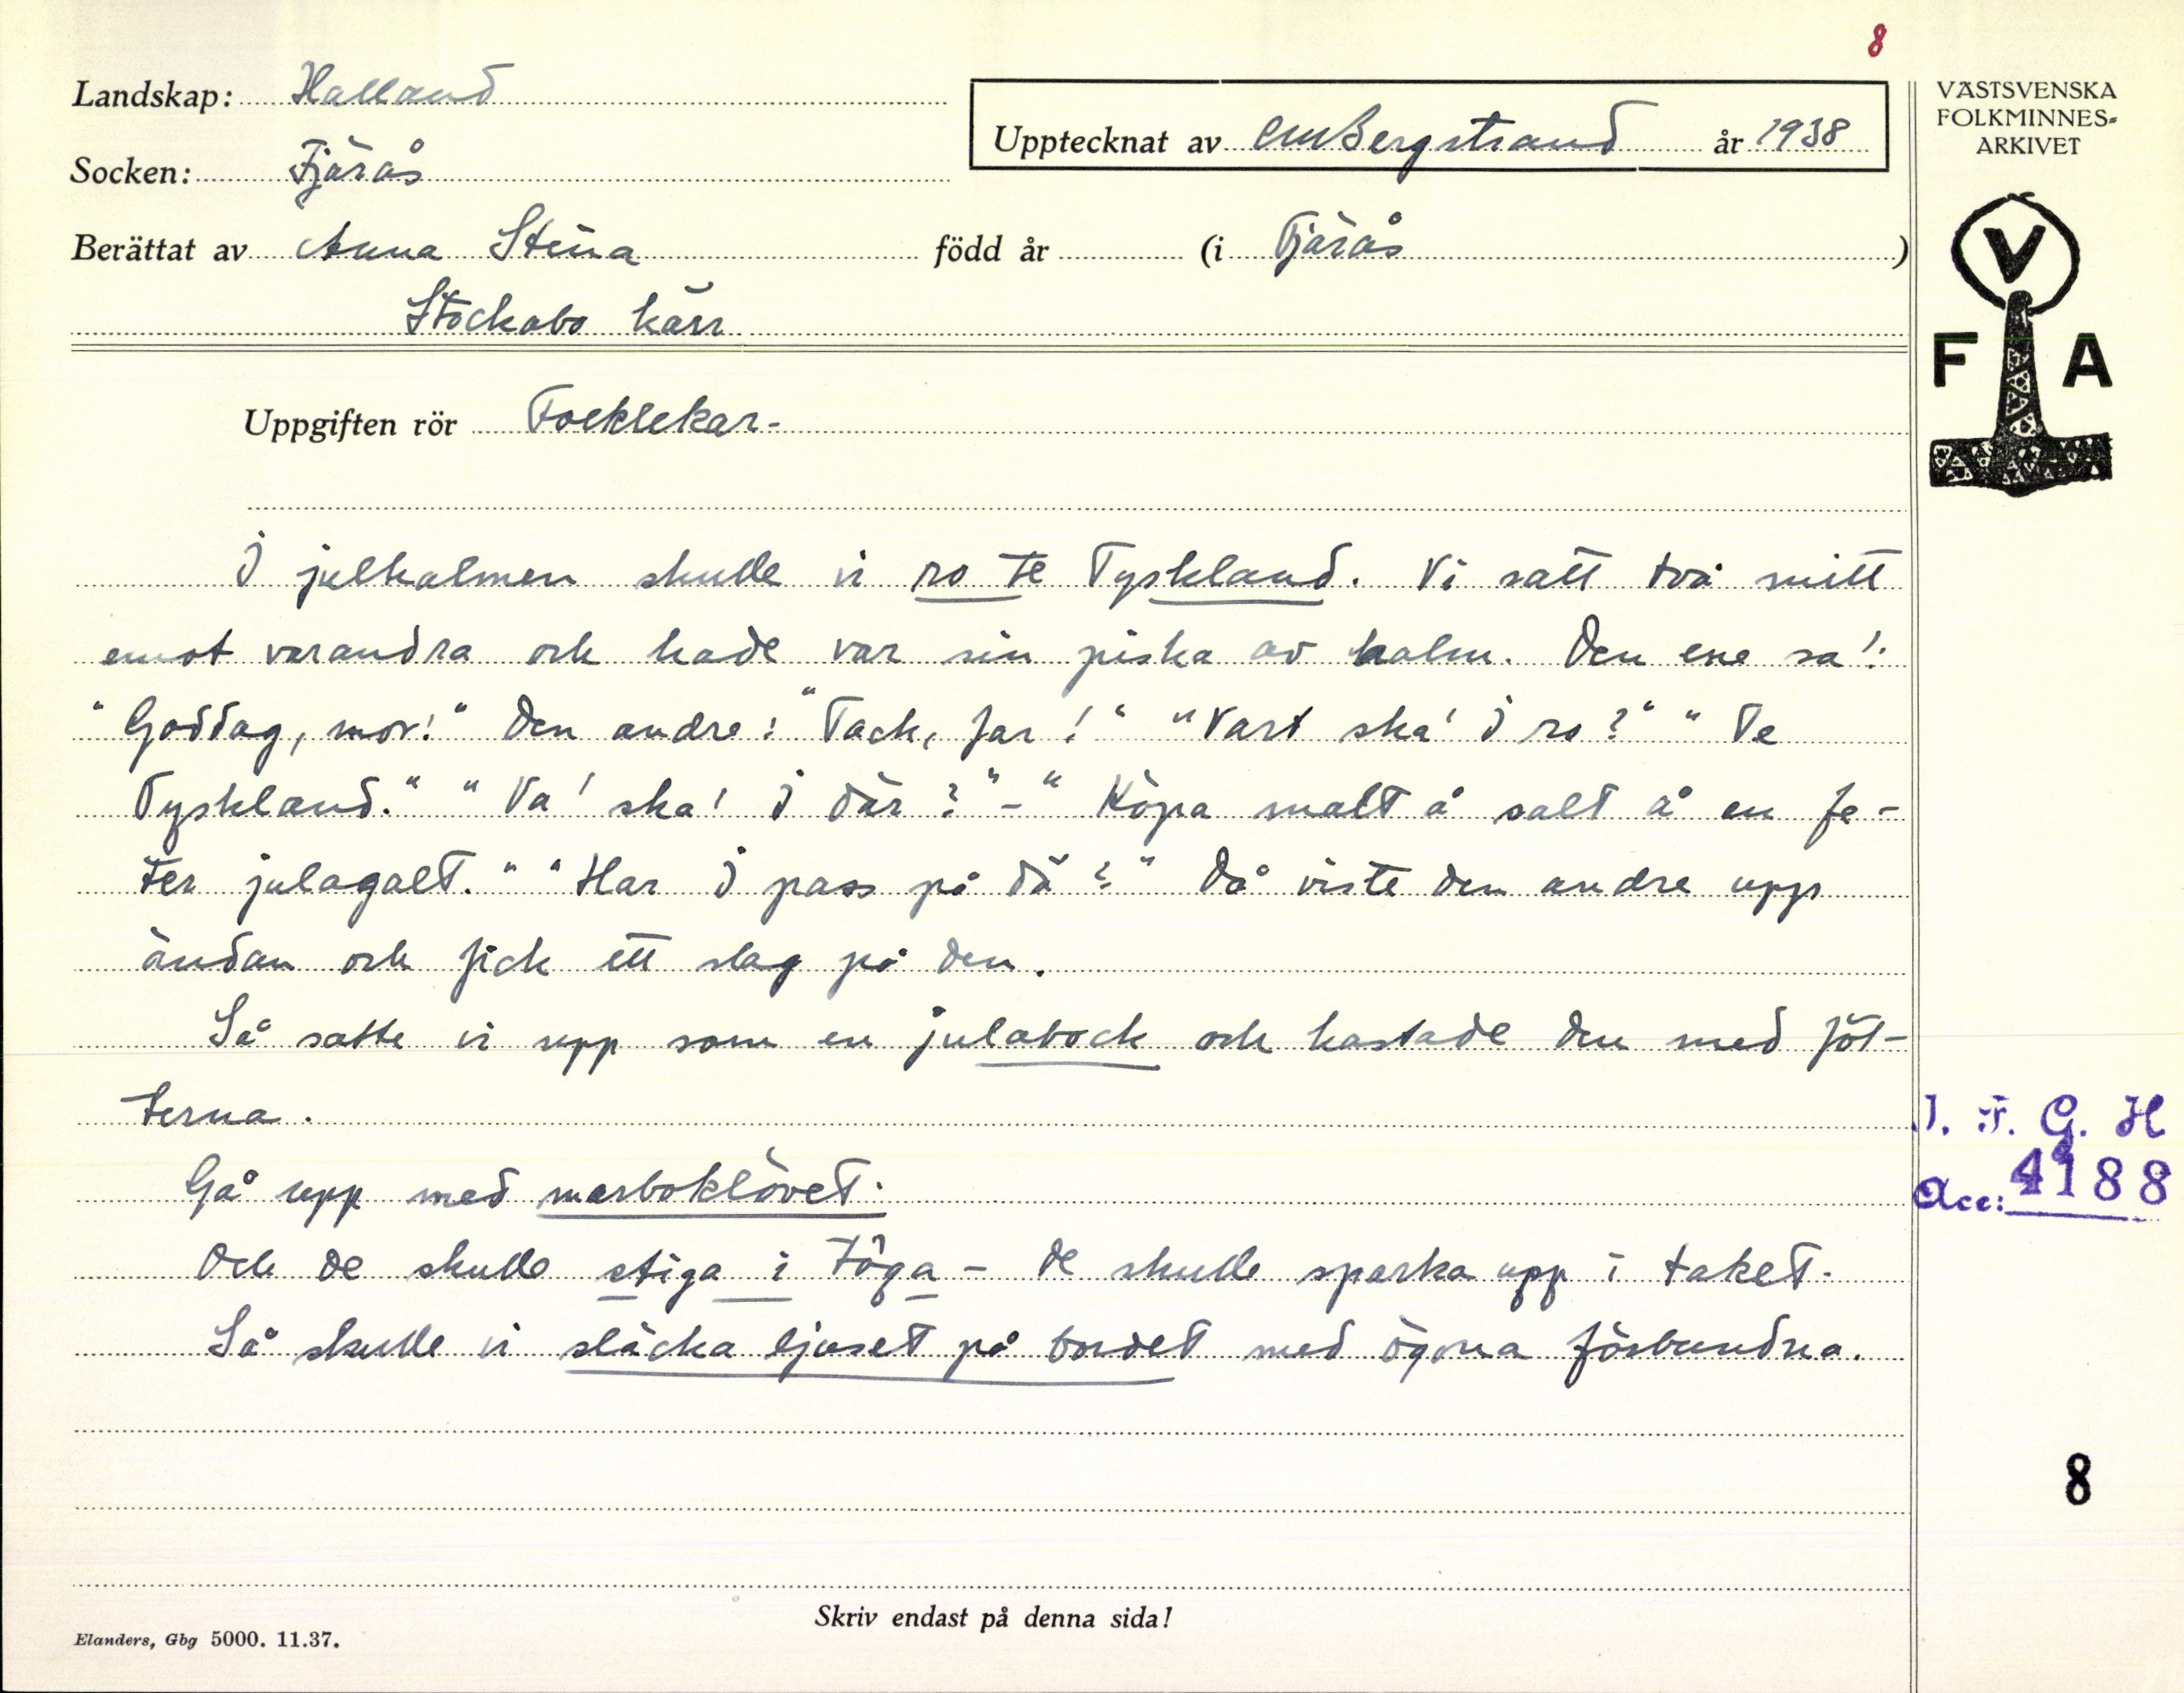 8
Landskap: Halland
Upptecknat av CMBergstrand år 1938
Socken: Fjärås
Berättat av Anna Stina född år (i Fjärås)
Stockabo kärr
VÄSTSVENSKA
FOLKMINNES-
ARKIVET
V
F A
Uppgiften rör Folklekar.
I julhalmen skulle vi ro te Tyskland. Vi satt två mitt
emot varandra och hade var sin piska av halm. Den ene sa':
"Goddag, mor!" Den andre: "Tack, far!" "Vart ska' I ro?" "Te
Tyskland." "Va' ska' I där?" - "Köpa malt å salt å en fe-
ter julagalt." "Har I pass på dä?" Då viste den andre upp
ändan och fick ett slag på den.
Så satte vi upp som en julabock och kastade den med föt-
terna.
Gå upp med morboklövet.
Och de skulle stiga i töga - de skulle sparka upp i taket.
Så skulle vi släcka ljuset på bordet med ögona förbundna.
I. F. G. H
Acc: 4188
8
Skriv endast på denna sida!
Elanders, Gbg 5000. 11.37.